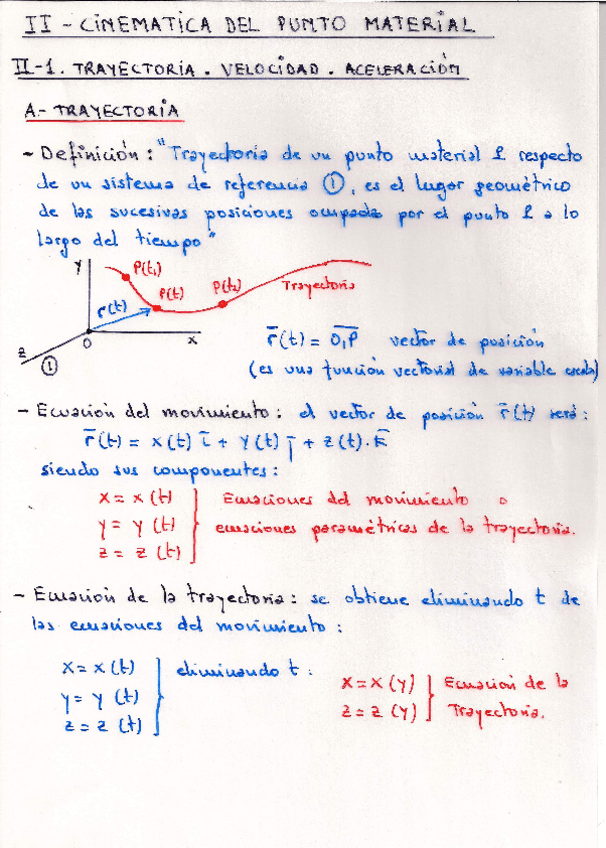 II - CINEMATICA DEL PUNTO MATERIAL
II-1. TRAYECTORIA. VELOCIDAD. ACELERACIÓN
A.- TRAYECTORIA
- Definición: "Trayectoria de un punto material P respecto
de un sistema de referencia ①, es el lugar geométrico
de las sucesivas posiciones ocupadas por el punto P a lo
largo del tiempo"
Y P(t₁)
r̄(t) P(t) P(t₂) Trayectoria
Z O X
①
r̄(t) = O₁P vector de posición
(es una función vectorial de variable escalar)
- Ecuación del movimiento: el vector de posición r̄(t) será:
r̄(t) = x(t) ī + y(t) j̄ + z(t). k̄
siendo sus componentes:
x = x(t)
y = y(t)
z = z(t)
Ecuaciones del movimiento o
ecuaciones paramétricas de la trayectoria.
- Ecuación de la trayectoria: se obtiene eliminando t de
las ecuaciones del movimiento:
x = x(t)
y = y(t)
z = z(t)
eliminando t:
x = x(y)
z = z(y)
Ecuación de la
Trayectoria.